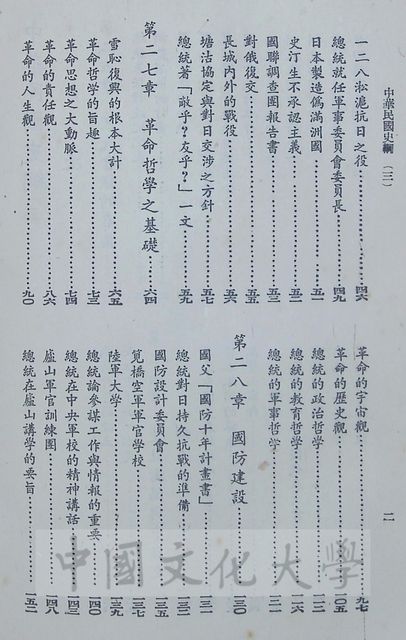 中華民國史綱（三）
一二八淞滬抗日之役……四六
總統就任軍事委員會委員長……四九
日本製造偽滿洲國……五一
史汀生不承認主義……五二
國聯調查團報告書……五三
對俄復交……五五
長城內外的戰役……五六
塘沽協定與對日交涉之方針……五七
總統著「敵乎？友乎？」一文……五九
第二七章　革命哲學之基礎……六四
雪恥復興的根本大計……六五
革命哲學的旨趣……七三
革命思想之大動脈……七四
革命的責任觀……八六
革命的人生觀……九〇
二
革命的宇宙觀……九七
革命的歷史觀……一〇五
總統的政治哲學……一一二
總統的教育哲學……一一六
總統的軍事哲學……一二一
第二八章　國防建設……一三〇
國父「國防十年計畫書」……一三一
總統對日持久抗戰的準備……一三二
國防設計委員會……一三五
筧橋空軍軍官學校……一三七
陸軍大學……一三九
總統論參謀工作與情報的重要……一四〇
總統在中央軍校的精神講話……一四三
廬山軍官訓練團……一四八
總統在廬山講學的要旨……一五二
中國文化大學